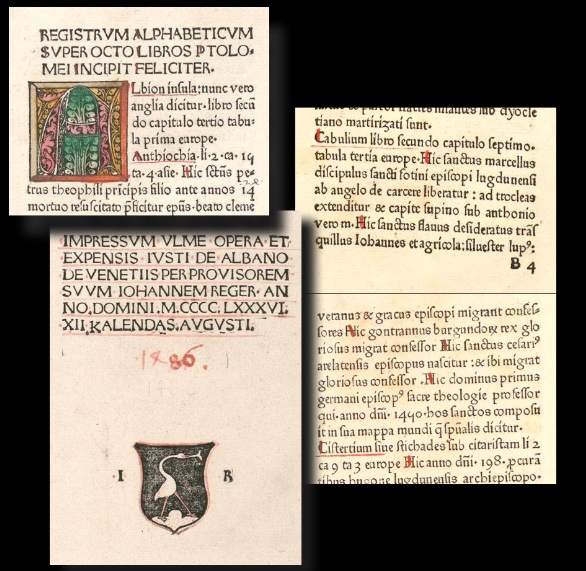 REGISTRVM ALPHABETICVM
SVPER OCTO LIBROS PTOLO-
MEI INCIPIT FELICITER.
ALbion insula; nunc vero
anglia dicitur· libro secū
do capitulo tertio tabu-
la prima europe.
Anthiochia· li· 2· ca· 19
ta· 4· asie· Hic sctūs pe-
trus theophili prīcipis filiū ante annos 14
mortuo resuscitato pficitur epūs· beato cleme
IMPRESSVM VLME OPERA ET
EXPENSIS IVSTI DE ALBANO
DE VENETIIS PER PROVISOREM
SVVM IOHANNEM REGER· AN
NO, DOMINI. M.CCCC. LXXXVI.
XII, KALENDAS, AVGVSTI.
1486.
I R
tiano martirizati sunt.
Cabulium libro secundo capitulo septimo.
tabula tertia europe· Hic sanctus marcellus
discipulus sancti fotini episcopi lugdunensi
ab angelo de carcere liberatur : ad trocleas
extenditur & capite supino sub anthonio
vero m. Hic sanctus flauus desideratus trās
quillus Iohannes et agricola; siluester lupꝰ:
B 4
veranus & gracus episcopi migrant confes-
sores Hic gontrannus burgundoꝝ rex glo
riosus migrat confessor Hic sanctus cesariꝰ
arelatensis episcopus nascitur : & ibi migrat
gloriosus confessor . Hic dominus primus
germani episcopꝰ sacre theologie professor
qui· anno dn̄i· 1490· hos sanctos composu
it in sua mappa mundi q̄ spūalis dicitur.
Cistertium siue stichades sub citaristam li 2
ca 9 ta 3 europe Hic anno dn̄i· 198· ꝓcurā
tibus hugone lugdunensis archiepiscopo·